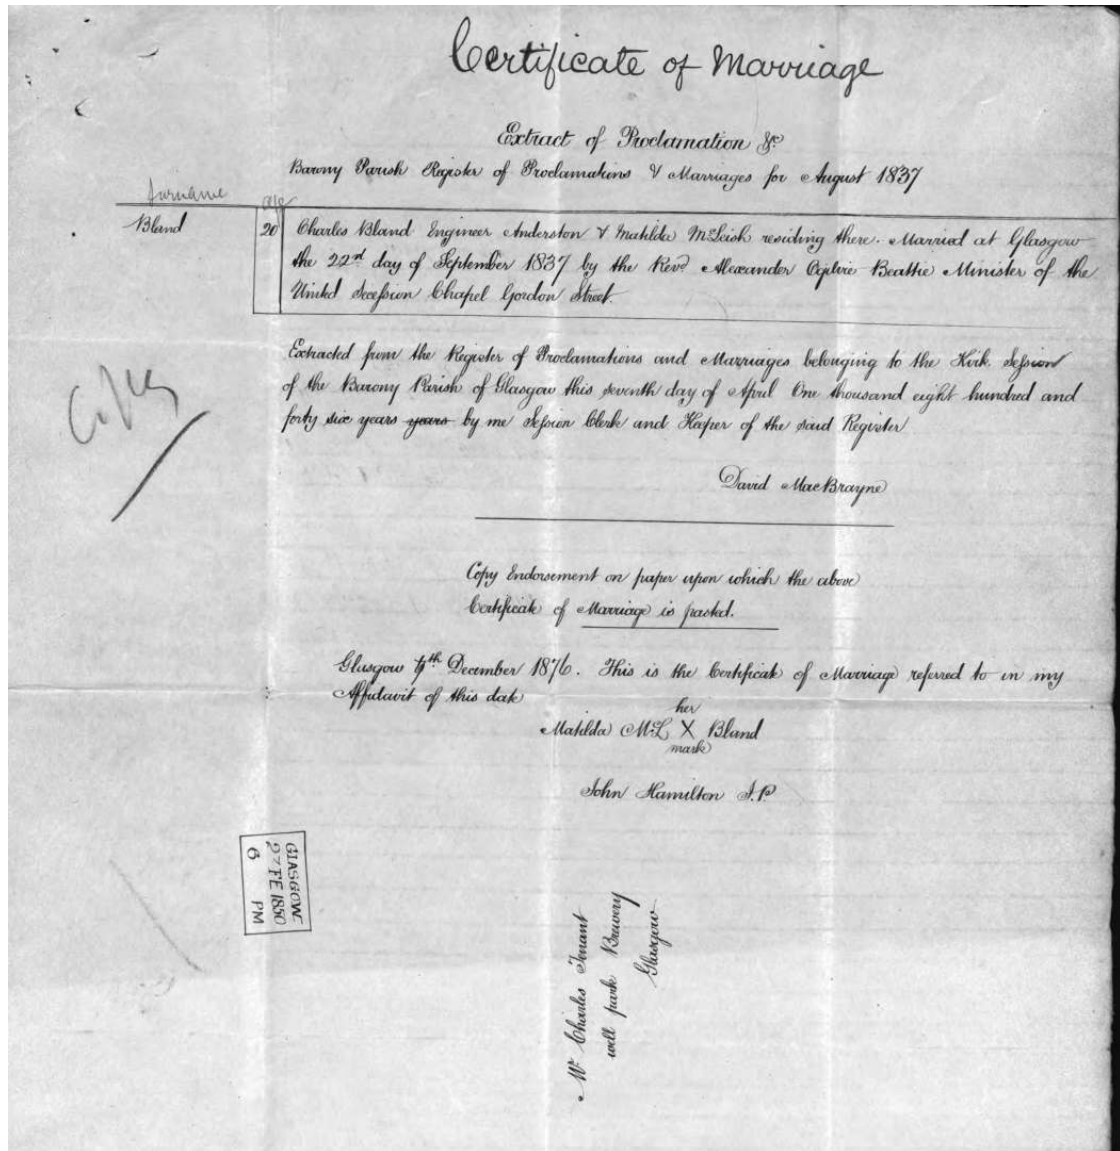 Certificate of Marriage
Extract of Proclamation &c
Barony Parish Register of Proclamations & Marriages for August 1837
Surname
age
Bland
20
Charles Bland Engineer Anderston & Matilda McLeish residing there. Married at Glasgow
the 22nd day of September 1837 by the Revd Alexander Ogilvie Beattie Minister of the
United Secession Chapel Gordon Street.
Extracted from the Register of Proclamations and Marriages belonging to the Kirk Session
of the Barony Parish of Glasgow this seventh day of April One thousand eight hundred and
forty six years years by me Session Clerk and Keeper of the said Register
David MacBrayne
Copy
Copy Endorsement on paper upon which the above
Certificate of Marriage is pasted.
Glasgow th December 1876. This is the Certificate of Marriage referred to in my
Affidavit of this date
her
Matilda McL X Bland
mark
John Hamilton J.P.
GLASGOW
27 FE 1850
6 PM
Mr Charles Tenant
well park Brewery
Glasgow